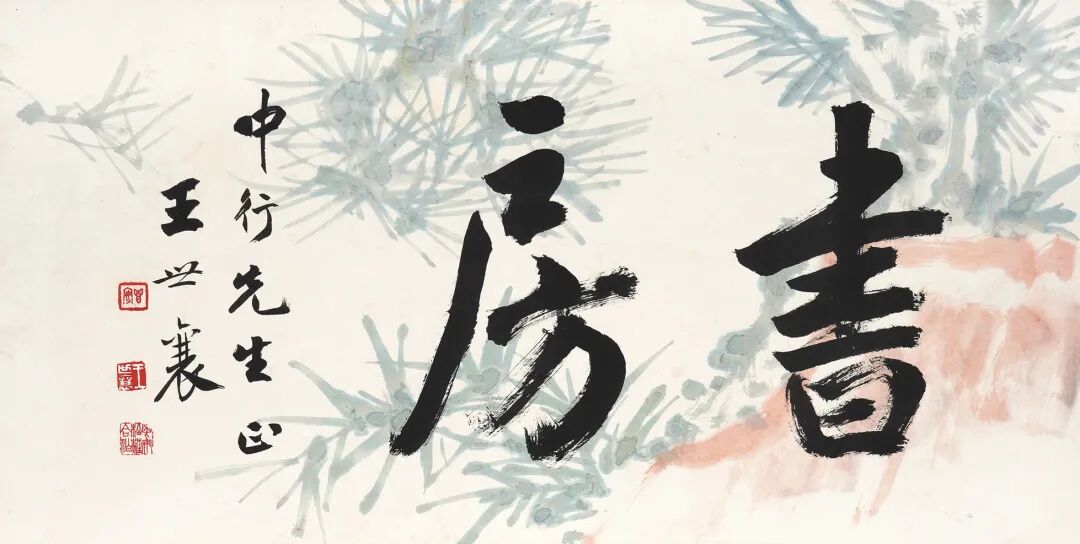 書房
中行先生正
王世襄